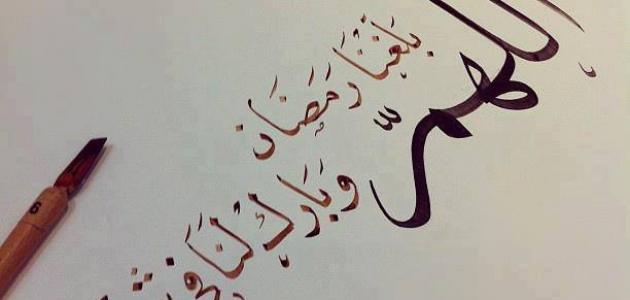 اللهمّ
بَلغْنَا رَمَضَان
وبَارِكْ لَنَا في